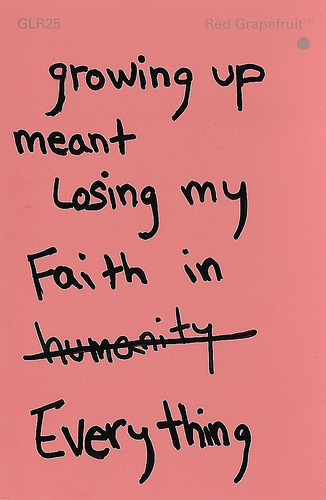 GLR25 Red Grapefruit™
growing up
meant
Losing my
Faith in
humanity
Everything